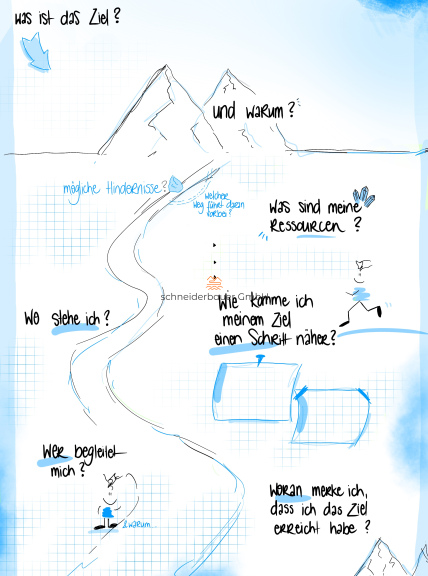 Was ist das Ziel?
und warum?
mögliche Hindernisse?
welcher
Weg führt daran
vorbei?
Was sind meine
Ressourcen ?
schneiderbauer GmbH
Wie komme ich
meinem Ziel
einen Schritt näher?
Wo stehe ich?
Wer begleitet
mich?
& warum...
Woran merke ich,
dass ich das Ziel
erreicht habe ?